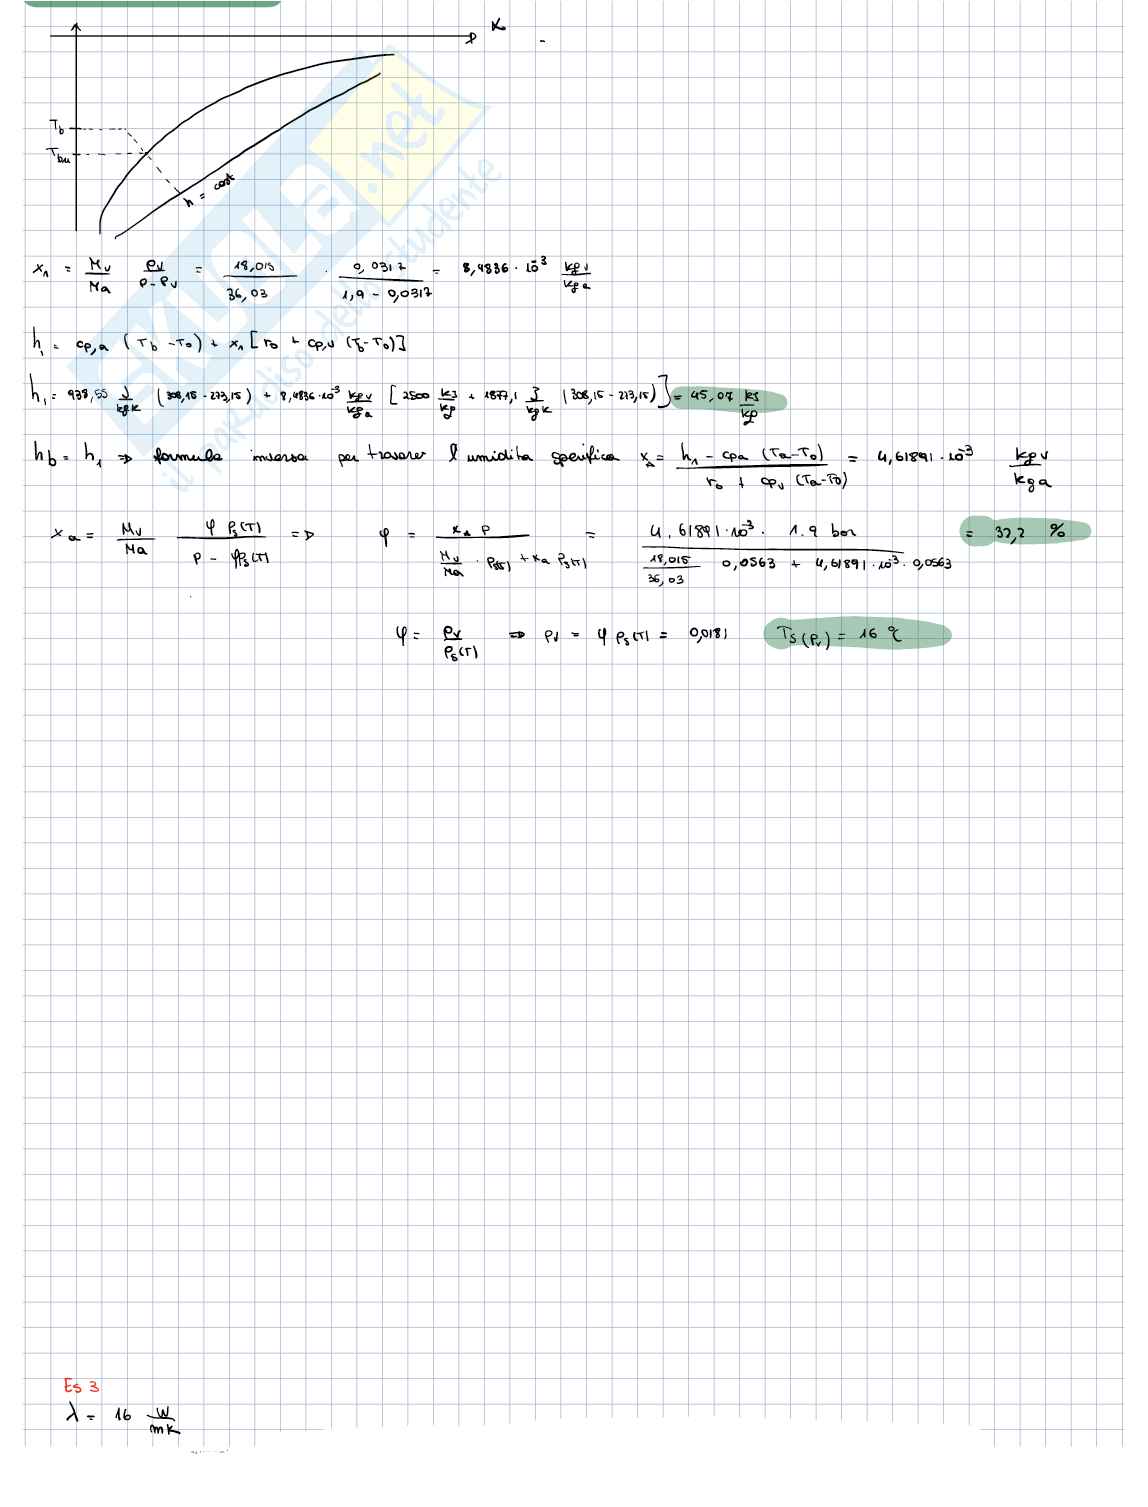 x
T_b
T_bu
h = cost
x₁ = M_v/M_a p_v/(p - p_v) = 18,015/36,03 · 0,0317/(1,9 - 0,0317) = 8,4836 · 10⁻³ kg_v/kg_a
h₁ = c_p,a (T_b - T_0) + x₁ [r_0 + c_p,v (T_b - T_0)]
h₁ = 938,55 J/kgK (308,15 - 273,15) + 8,4836 · 10⁻³ kg_v/kg_a [2500 kJ/kg + 1877,1 J/kgK (308,15 - 273,15)] = 45,07 kJ/kg
h_b = h₁ ⇒ formula inversa per trovare l'umidità specifica x_A = (h₁ - c_pa (T_a - T_0))/(r_0 + c_pv (T_a - T_0)) = 4,61891 · 10⁻³ kg_v/kg_a
x_a = M_v/M_a φ p_s(T)/(p - φ p_s(T)) ⇒ φ = x_a p/(M_v/M_a · p_s(T) + x_a p_s(T)) = 4,61891 · 10⁻³ · 1.9 bar/(18,015/36,03 0,0563 + 4,61891 · 10⁻³ · 0,0563) = 32,2 %
φ = p_v/p_s(T) ⇒ p_v = φ p_s(T) = 0,0181 T_s(p_v) = 16 °C
Es 3
λ = 16 W/mK
SKUOLA.net
il paradiso dello studente